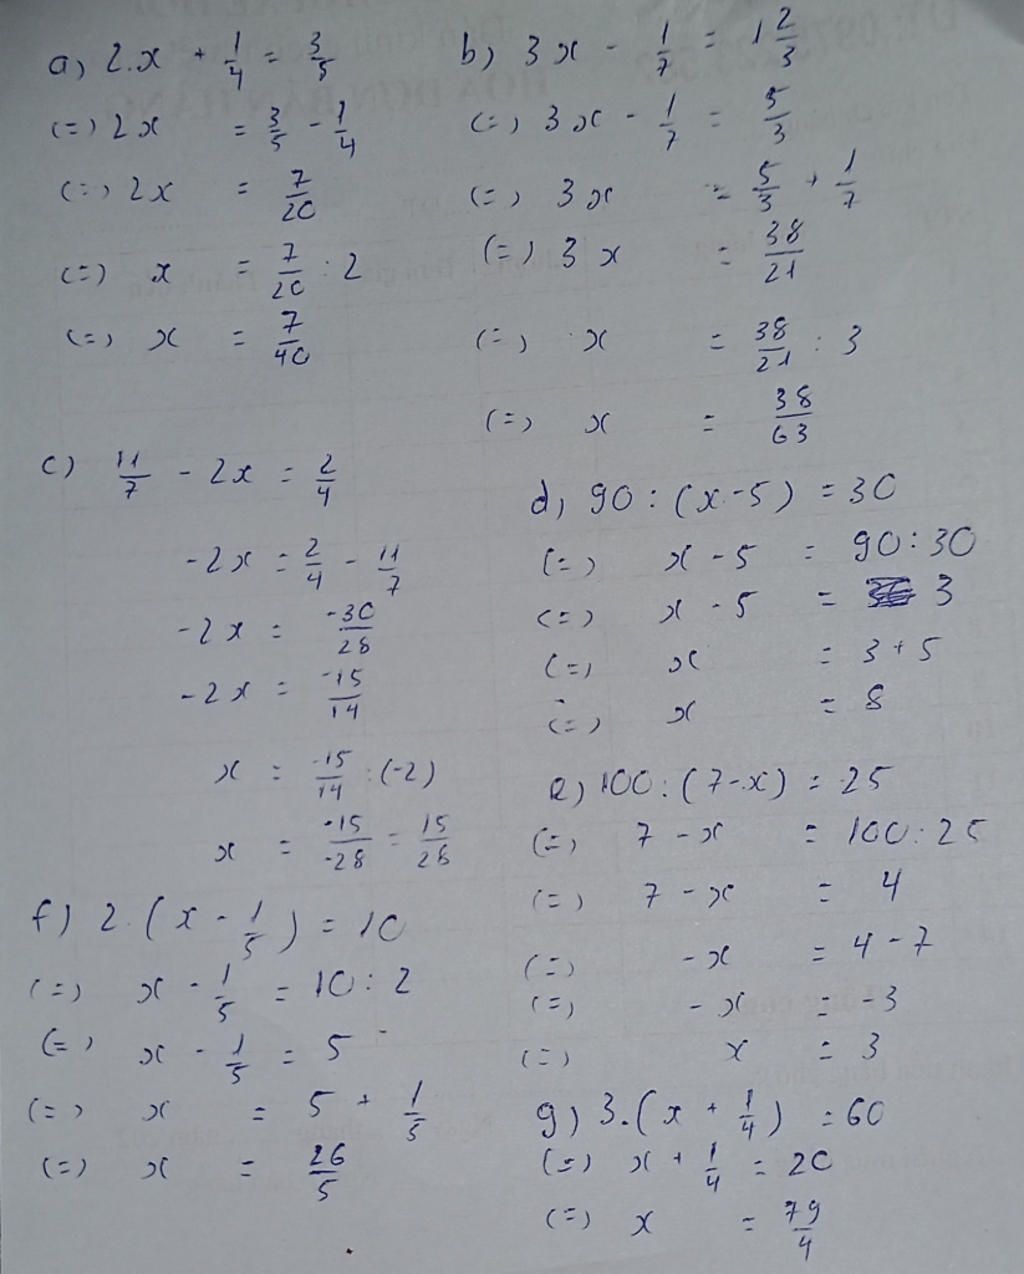 a) 2.x + 1/4 = 3/5
(=) 2x = 3/5 - 1/4
(=) 2x = 7/20
(=) x = 7/20 : 2
(=) x = 7/40
b) 3x - 1/7 = 1 2/3
(=) 3x - 1/7 = 5/3
(=) 3x = 5/3 + 1/7
(=) 3x = 38/21
(=) x = 38/21 : 3
(=) x = 38/63
c) 11/7 - 2x = 2/4
-2x = 2/4 - 11/7
-2x = -30/28
-2x = -15/14
x = -15/14 : (-2)
x = -15/-28 = 15/28
d) 90 : (x - 5) = 30
(=) x - 5 = 90 : 30
(=) x - 5 = 3
(=) x = 3 + 5
(=) x = 8
e) 100 : (7 - x) = 25
(=) 7 - x = 100 : 25
(=) 7 - x = 4
(=) -x = 4 - 7
(=) -x = -3
(=) x = 3
f) 2. (x - 1/5) = 10
(=) x - 1/5 = 10 : 2
(=) x - 1/5 = 5
(=) x = 5 + 1/5
(=) x = 26/5
g) 3. (x + 1/4) = 60
(=) x + 1/4 = 20
(=) x = 79/4